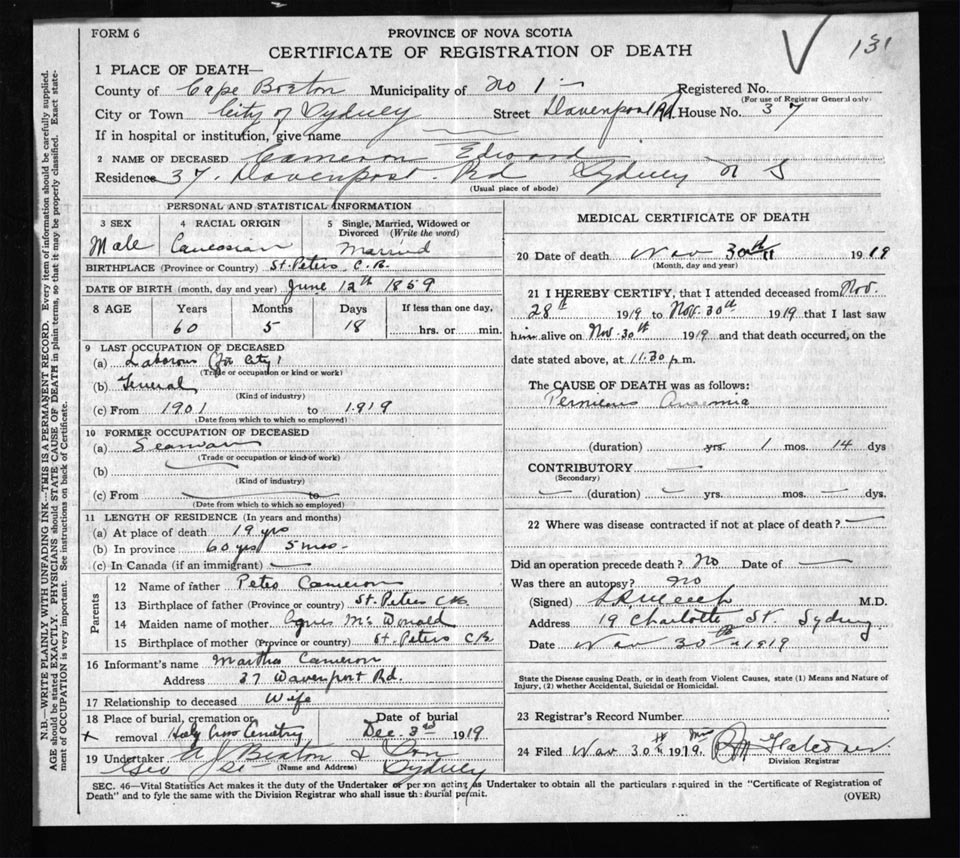 FORM 6
PROVINCE OF NOVA SCOTIA
CERTIFICATE OF REGISTRATION OF DEATH
131
1 PLACE OF DEATH—
County of Cape Breton Municipality of No 1 Registered No.
(For use of Registrar General only)
City or Town City of Sydney Street Davenport Rd. House No. 37
If in hospital or institution, give name
2 NAME OF DECEASED Cameron Edward
Residence 37. Davenport Rd Sydney N S
(Usual place of abode)
PERSONAL AND STATISTICAL INFORMATION
3 SEX 4 RACIAL ORIGIN 5 Single, Married, Widowed or Divorced (Write the word)
Male Caucasian Married
BIRTHPLACE (Province or Country) St. Peters C.B.
DATE OF BIRTH (month, day and year) June 12th 1859
8 AGE Years Months Days If less than one day,
60 5 18 hrs. or min.
9 LAST OCCUPATION OF DECEASED
(a) Laborous (for City)
(Trade or occupation or kind or work)
(b) General
(Kind of industry)
(c) From 1901 to 1919
(Date from which to which so employed)
10 FORMER OCCUPATION OF DECEASED
(a) Seaman
(Trade or occupation or kind of work)
(b)
(Kind of industry)
(c) From to
(Date from which to which so employed)
11 LENGTH OF RESIDENCE (In years and months)
(a) At place of death 19 yrs
(b) In province 60 yrs 5 mos-
(c) In Canada (if an immigrant)
Parents
12 Name of father Peter Cameron
13 Birthplace of father (Province or country) St. Peters CB.
14 Maiden name of mother Agnes McDonald
15 Birthplace of mother (Province or country) St. Peters CB
16 Informant's name Martha Cameron
Address 37 Davenport Rd.
17 Relationship to deceased Wife
18 Place of burial, cremation or removal Holy Cross Cemetry
Date of burial Dec. 3rd 1919
19 Undertaker A J Beaton & Son
(Name and Address)
Geo St Sydney
MEDICAL CERTIFICATE OF DEATH
20 Date of death Nov 30th 1919
(Month, day and year)
21 I HEREBY CERTIFY, that I attended deceased from Nov.
28th 1919 to Nov. 30th 1919 that I last saw
him alive on Nov. 30th 1919 and that death occurred, on the
date stated above, at 11.30 p.m.
The CAUSE OF DEATH was as follows:
Pernicous Anaemia
(duration) yrs. 1 mos. 14 dys
CONTRIBUTORY
(Secondary)
(duration) yrs. mos. dys.
22 Where was disease contracted if not at place of death?
Did an operation precede death? No Date of
Was there an autopsy? No
(Signed) M.D.
Address 19 Charlotte St. Sydney
Date Nov 30th 1919
State the Disease causing Death, or in death from Violent Causes, state (1) Means and Nature of
Injury, (2) whether Accidental, Suicidal or Homicidal.
23 Registrar's Record Number
24 Filed Nov 30th 1919.
Division Registrar
SEC. 46—Vital Statistics Act makes it the duty of the Undertaker or person acting as Undertaker to obtain all the particulars required in the "Certificate of Registration of
Death" and to fyle the same with the Division Registrar who shall issue the burial permit. (OVER)
N.B.—WRITE PLAINLY WITH UNFADING INK—THIS IS A PERMANENT RECORD. Every item of information should be carefully supplied.
AGE should be stated EXACTLY. PHYSICIANS should STATE CAUSE OF DEATH in plain terms, so that it may be properly classified. Exact state-
ment of OCCUPATION is very important. See instructions on back of Certificate.